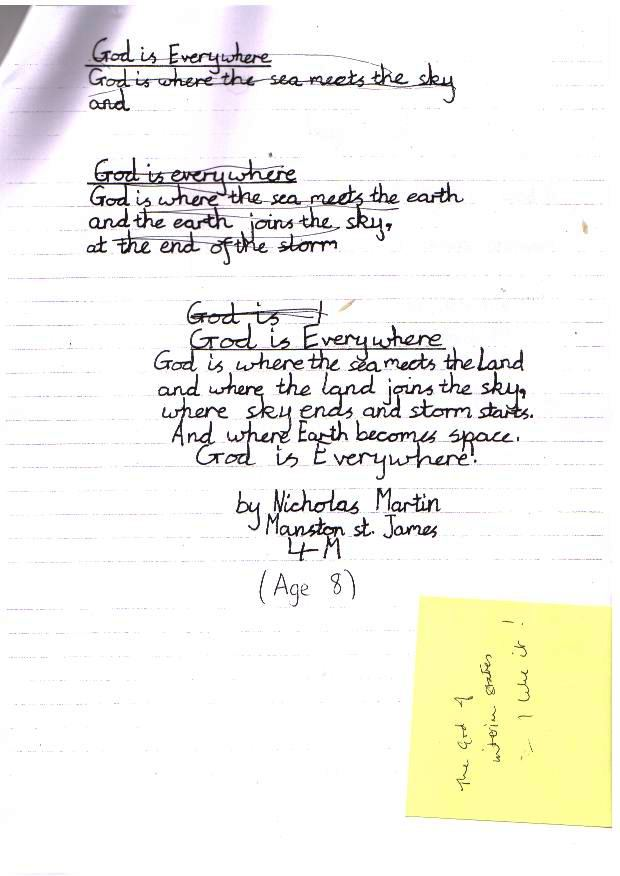 God is Everywhere
God is where the sea meets the sky
and
God is everywhere
God is where the sea meets the earth
and the earth joins the sky,
at the end of the storm
God is
God is Everywhere
God is where the sea meets the Land
and where the land joins the sky,
where sky ends and storm starts.
And where Earth becomes space.
God is Everywhere!
by Nicholas Martin
Manston st. James
4M
(Age 8)
The God of
interim states
:- I like it!